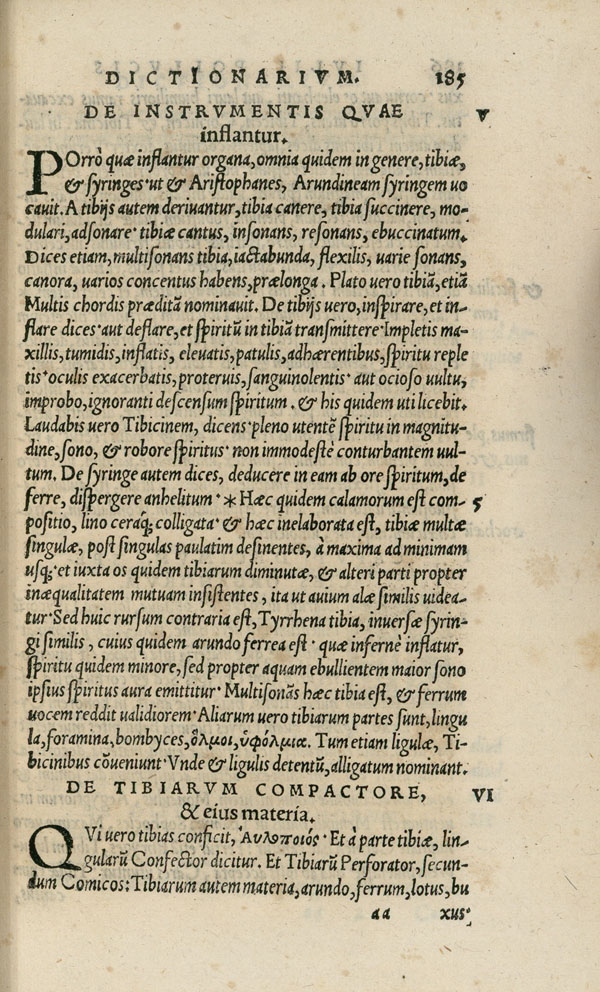 DICTIONARIVM. 185
DE INSTRVMENTIS QVAE V
inflantur.
POrrò quæ inflantur organa, omnia quidem in genere, tibiæ,
& syringes· ut & Aristophanes, Arundineam syringem uo
cauit. A tibijs autem deriuantur, tibia canere, tibia succinere, mo-
dulari, adsonare· tibiæ cantus, insonans, resonans, ebuccinatum.
Dices etiam, multisonans tibia, iactabunda, flexilis, uarie sonans,
canora, uarios concentus habens, prælonga. Plato uero tibiā, etiā
Multis chordis præditā nominauit. De tibijs uero, inspirare, et in-
flare dices· aut deflare, et spiritū in tibiā transmittere· Impletis ma-
xillis, tumidis, inflatis, eleuatis, patulis, adhærentibus, spiritu reple
tis· oculis exacerbatis, proteruis, sanguinolentis· aut ocioso uultu,
improbo, ignoranti descensum spirituum. & his quidem uti licebit.
Laudabis uero Tibicinem, dicens· pleno utentē spiritu in magnitu-
dine, sono, & robore spiritus· non immodestè conturbantem uul-
tum. De syringe autem dices, deducere in eam ab ore spiritum, de
ferre, dispergere anhelitum· * Hæc quidem calamorum est com- 5
positio, lino ceraq́; colligata· & hæc inelaborata est, tibiæ multæ
singulæ, post singulas paulatim desinentes, à maxima ad minimam
usq;· et iuxta os quidem tibiarum diminutæ, & alteri parti propter
inæqualitatem mutuam insistentes, ita ut auium alæ similis uidea-
tur· Sed huic rursum contraria est, Tyrrhena tibia, inuersæ syrin-
gi similis, cuius quidem arundo ferrea est· quæ infernè inflatur,
spiritu quidem minore, sed propter aquam ebullientem maior sono
ipsius spiritus aura emittitur· Multisonās hæc tibia est, & ferrum
uocem reddit ualidiorem· Aliarum uero tibiarum partes sunt, lingu
la, foramina, bombyces, ὅλμοι, ὑφόλμια. Tum etiam ligulæ, Ti-
bicinibus cōueniunt· Vnde & ligulis detentū, alligatum nominant.
DE TIBIARVM COMPACTORE, VI
& eius materia.
QVi uero tibias conficit, Ἀυλοποιός· Et à parte tibiæ, lin-
gularū Confector dicitur. Et Tibiarū Perforator, secun-
dum Comicos: Tibiarum autem materia, arundo, ferrum, lotus, bu
aa xus·